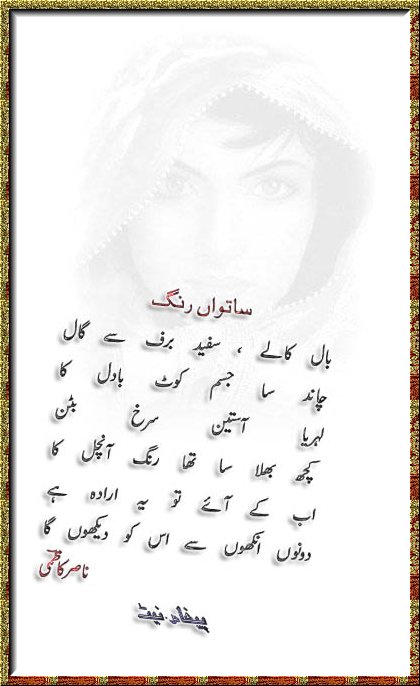 ساتواں رنگ
بال کالے ، سفید برف سے گال
چاند سا جسم کوٹ بادل کا
لہریا آستین سرخ بٹن
کچھ بھلا سا تھا رنگ آنچل کا
اب کے آئے تو یہ ارادہ ہے
دونوں آنکھوں سے اس کو دیکھوں گا
ناصر کاظمی
پیغام نیٹ